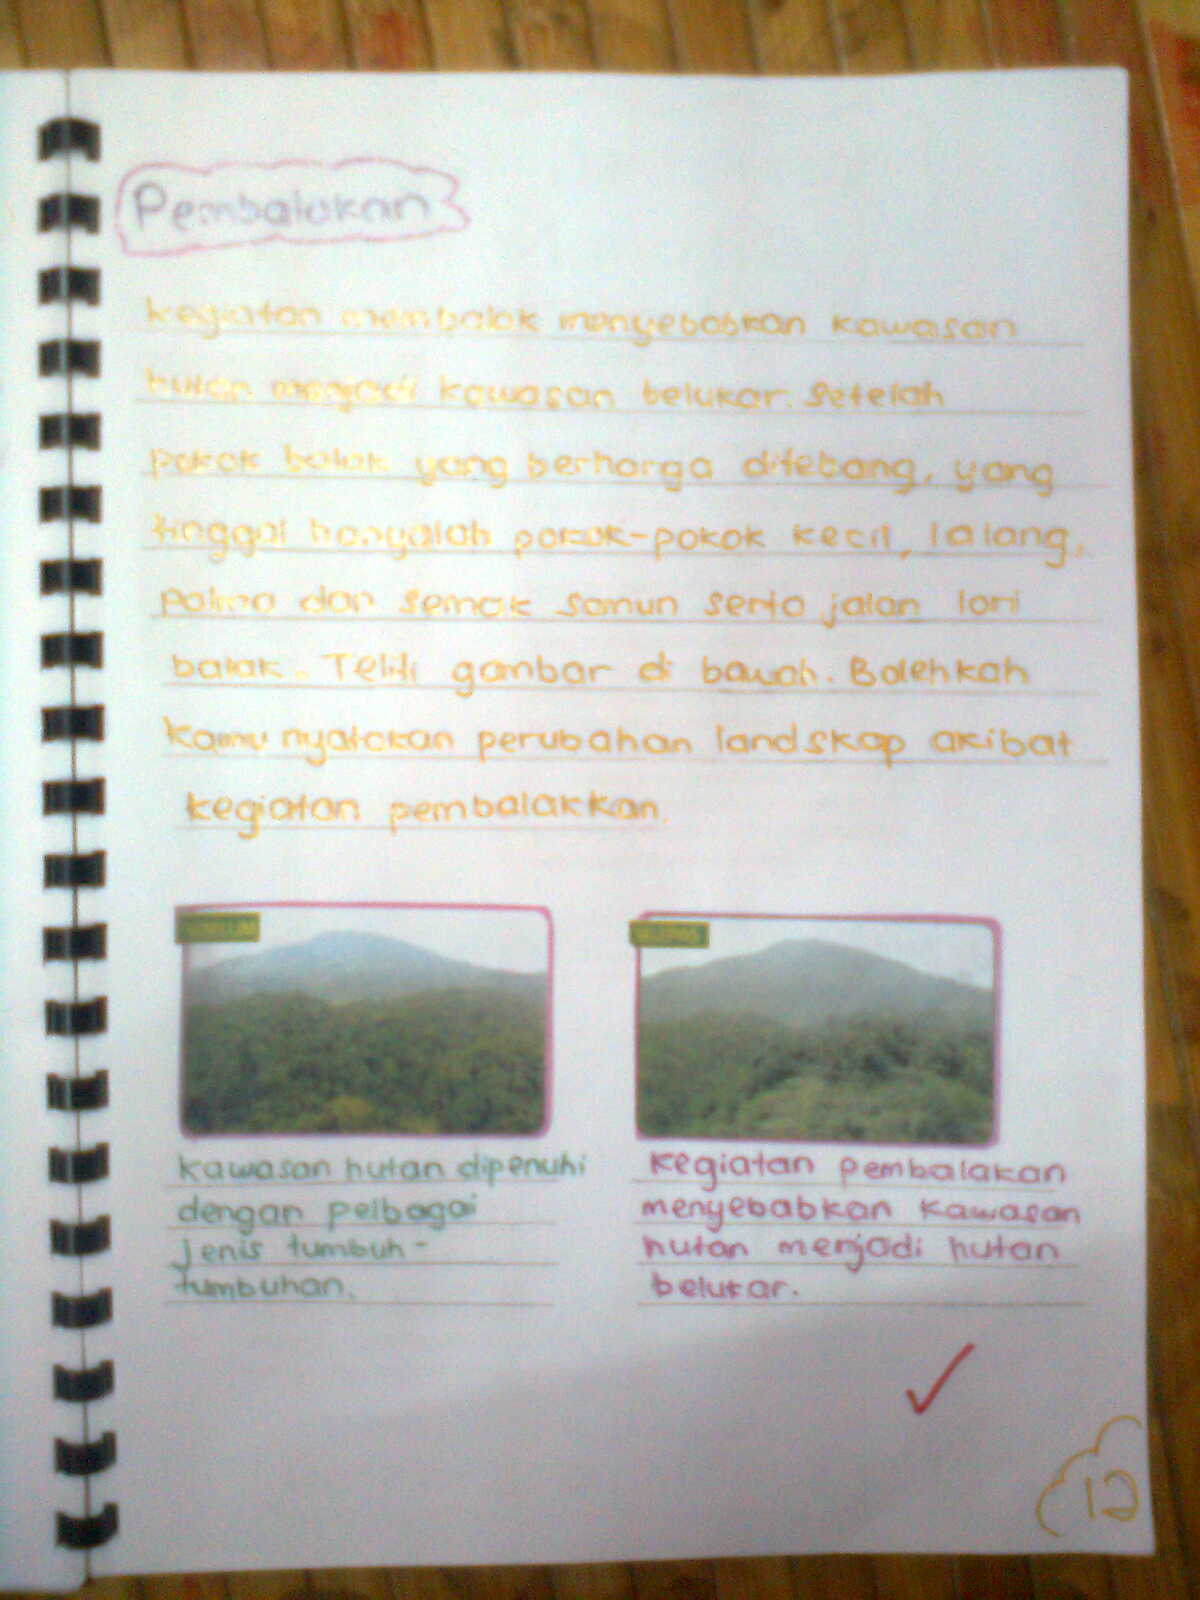 Pembalakan
kegiatan membalak menyebabkan kawasan
hutan menjadi kawasan belukar. setelah
pokok balak yang berharga ditebang, yang
tinggal hanyalah pokok-pokok kecil, lalang,
palma dan semak samun serta jalan lori
balak. Teliti gambar di bawah. Bolehkah
kamu nyatakan perubahan landskap akibat
kegiatan pembalakkan.
SEBELUM
SELEPAS
kawasan hutan dipenuhi
dengan pelbagai
jenis tumbuh-
tumbuhan.
kegiatan pembalakan
menyebabkan kawasan
hutan menjadi hutan
belukar.
12